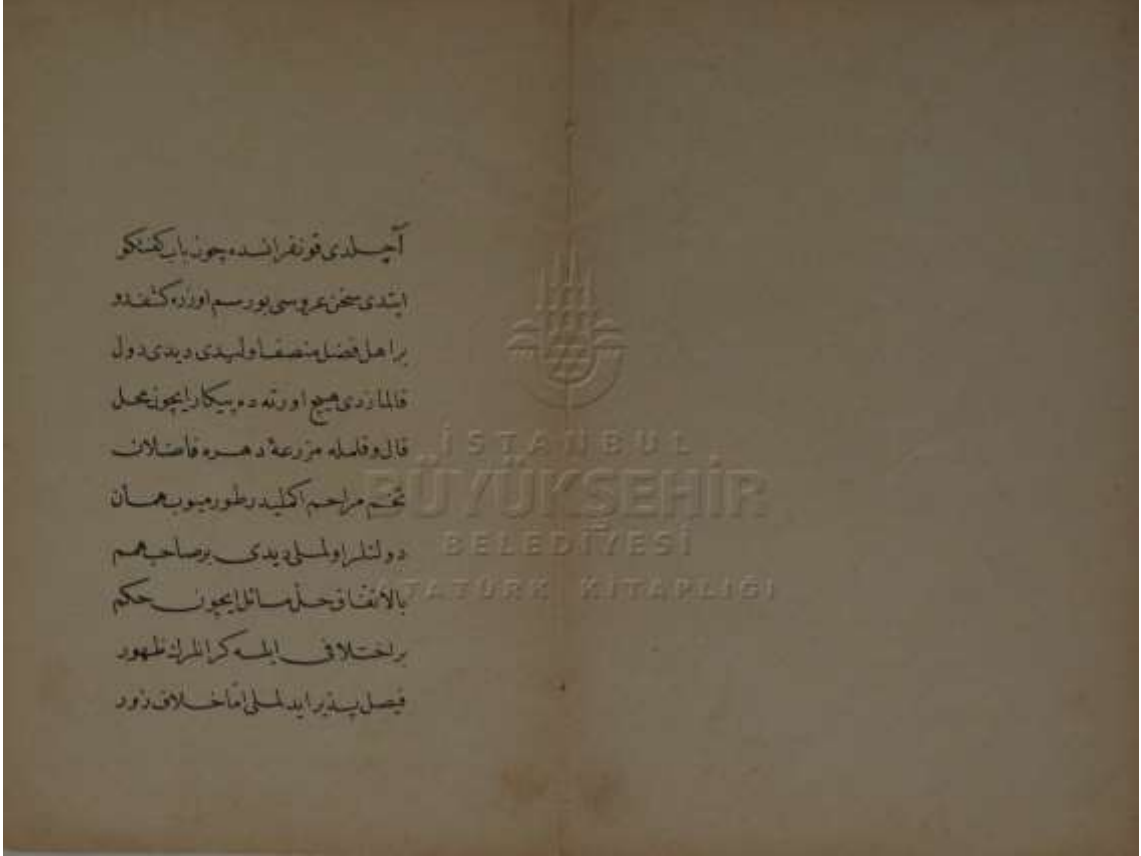 آچلدی قونفرانسده چون باب کفتکو
ایتدی سخن عروسی بو رسم اوزره کشف رو
بر اهل فضل منصف اولیدی دیدی دول
قالمازدی هیچ اورته ده پیکار ایچون محل
قال و قلمله مزرعهٔ دهره فاضلان
تخم مراحم اکملیدر طورمیوب همان
دولتلر اولملی دیدی بر صاحب همم
بالاتفاق حل مسائل ایچون حکم
بر اختلافی ایلسه کر انلرك ظهور
فیصل پذیر ایدلملی اما خلاف زور
İSTANBUL
BÜYÜKŞEHİR
BELEDİYESİ
ATATÜRK KİTAPLIĞI